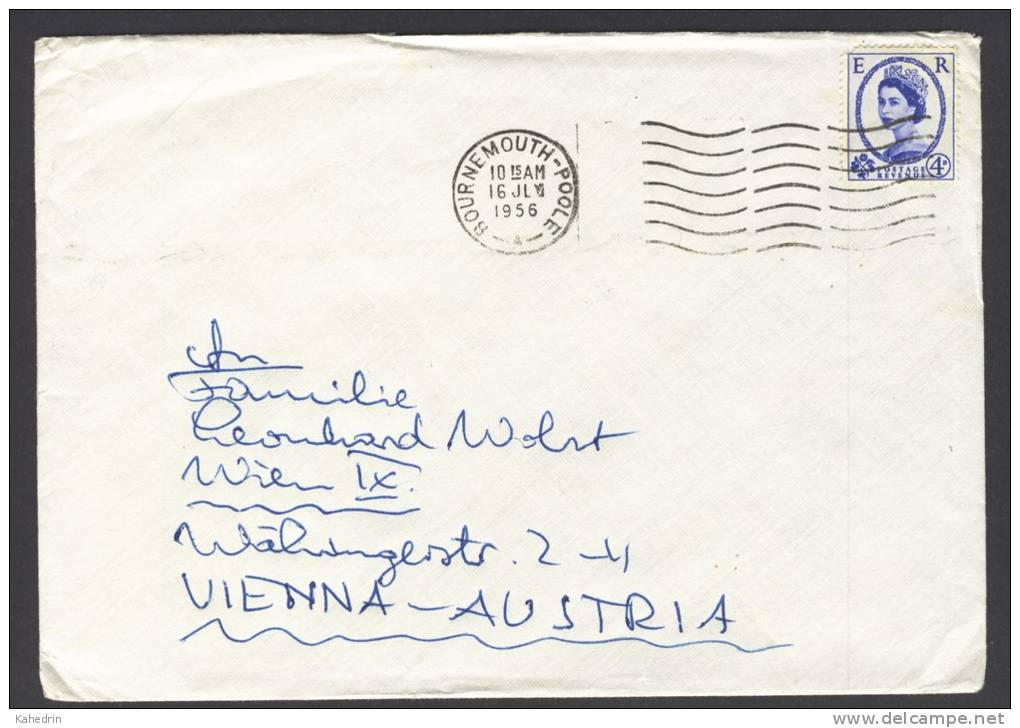 E R
POSTAGE
REVENUE 4D
BOURNEMOUTH-POOLE
10 15 AM
16 JLY
1956
A
An
Familie
Leonhard Wobst
Wien IX.
Währingerstr. 2-4
VIENNA-AUSTRIA
Kahedrin
www.delcampe.net